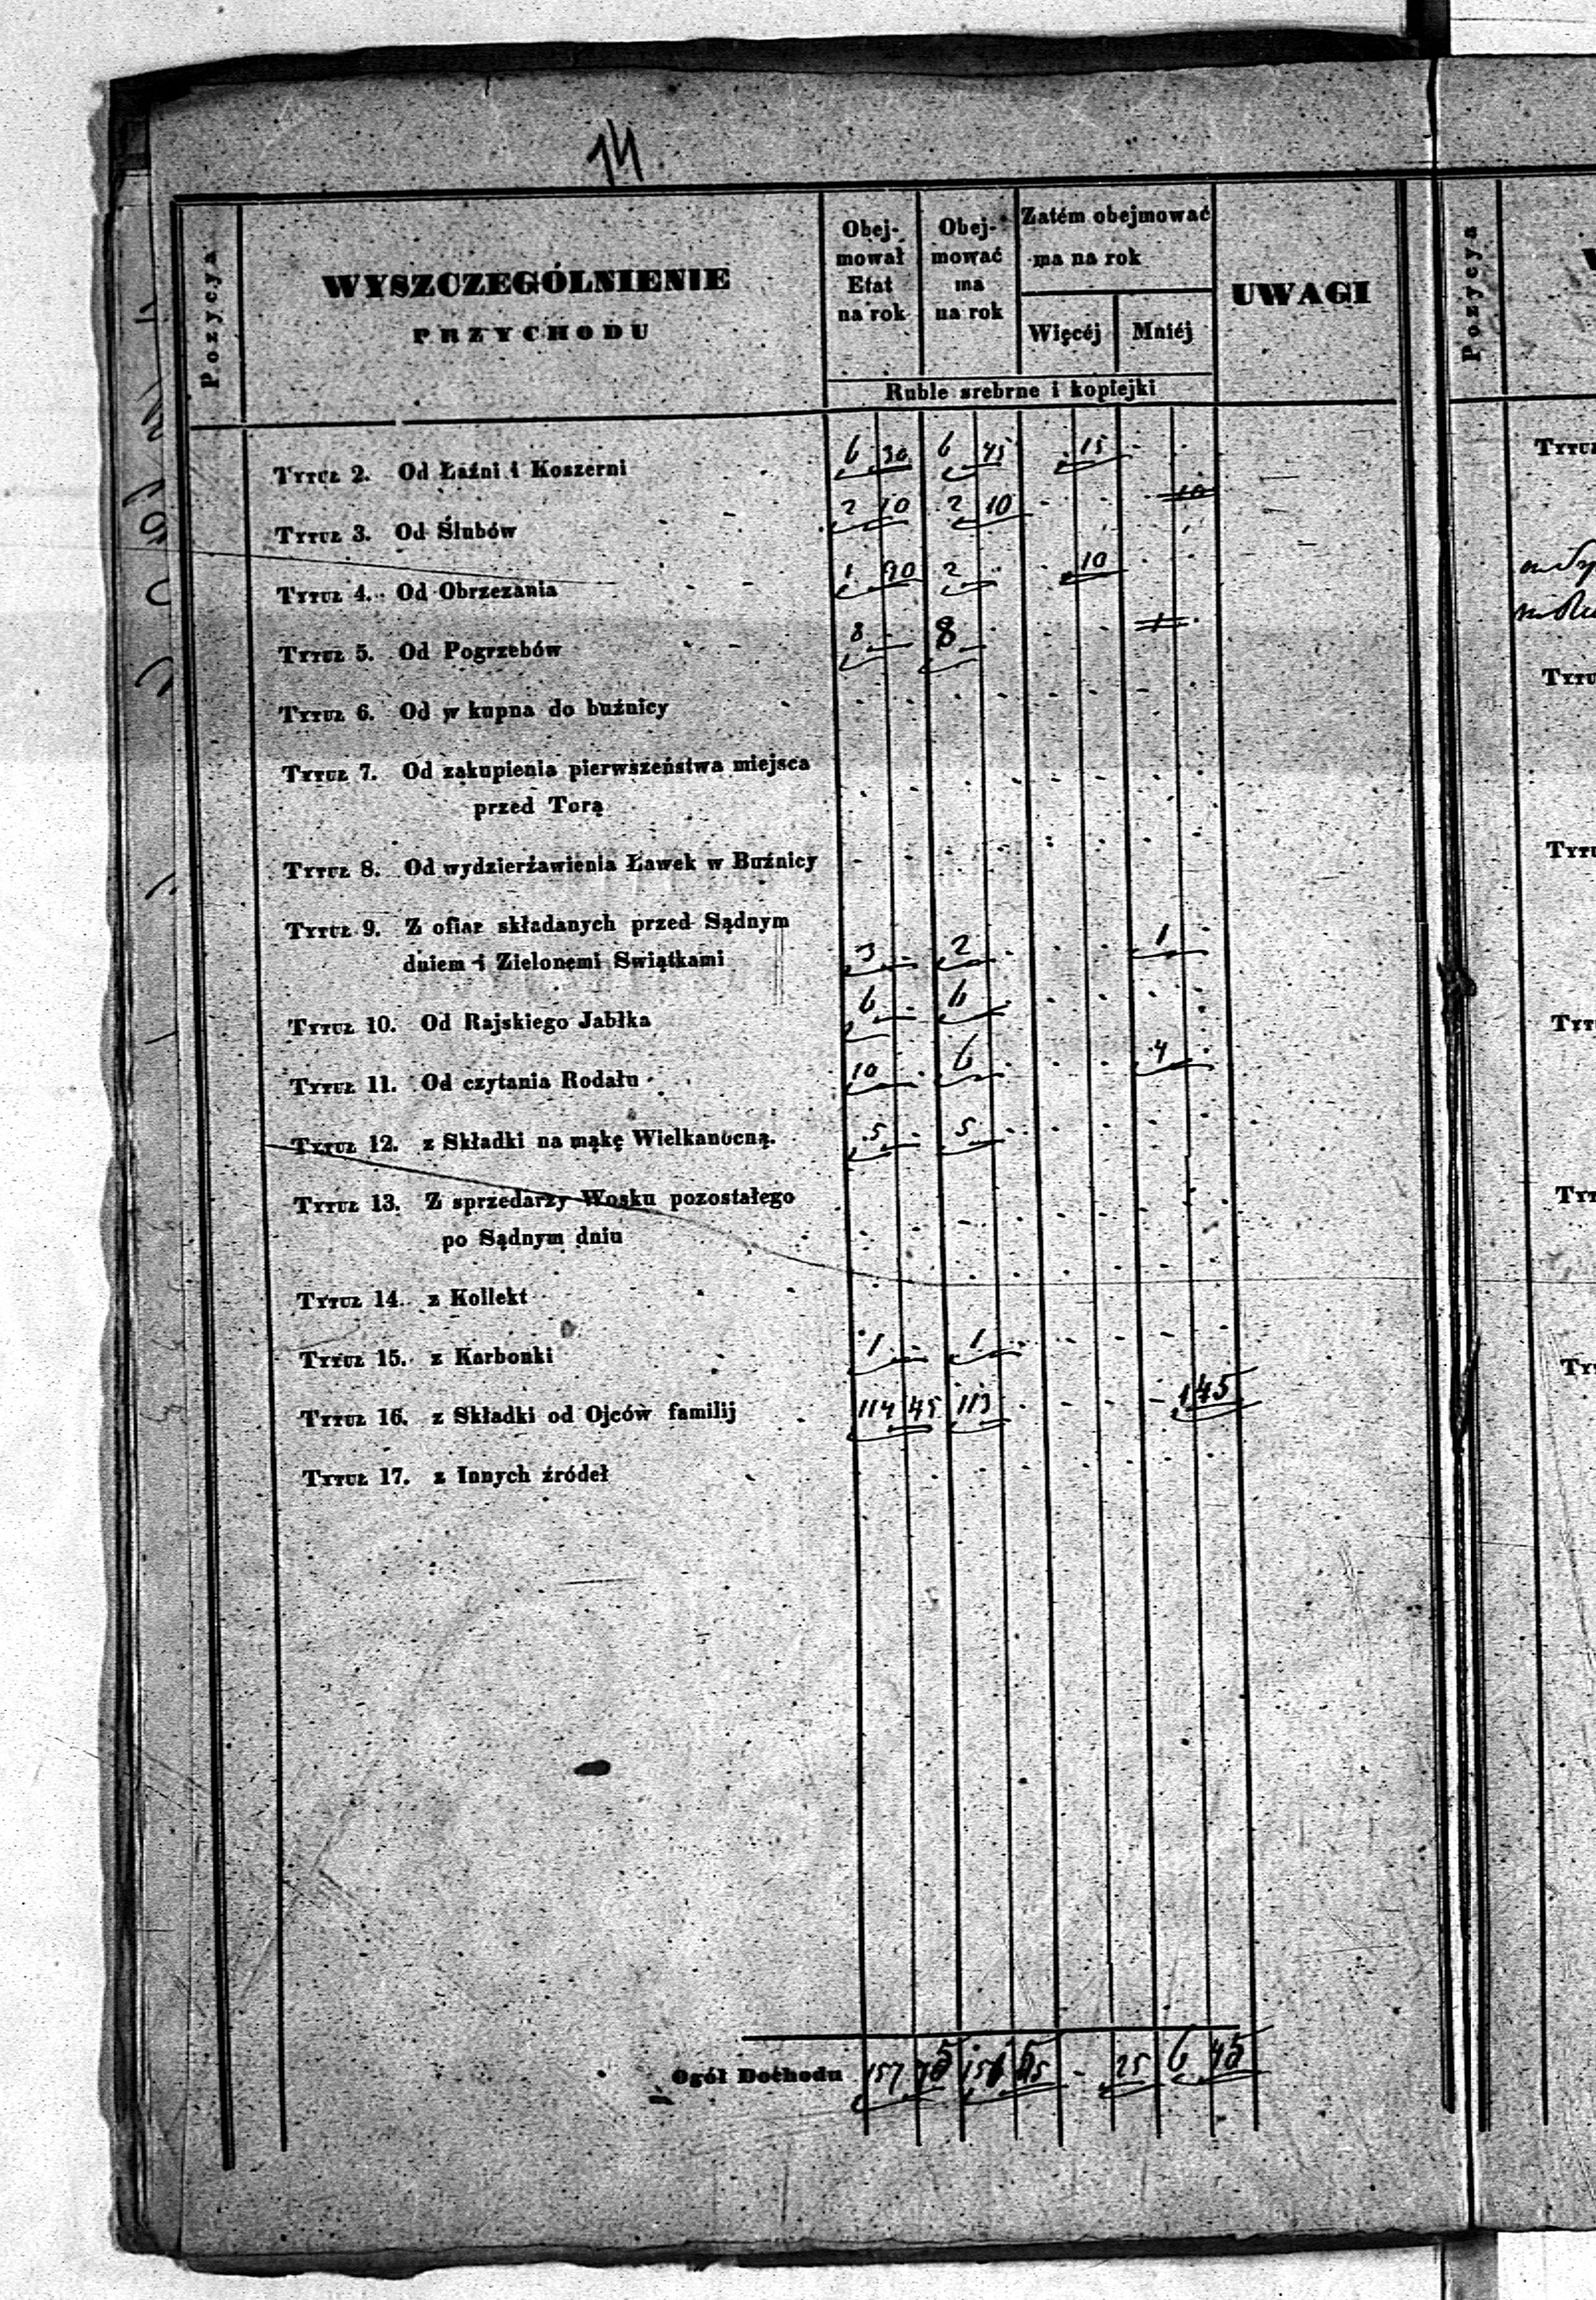 14
Pozycya
WYSZCZEGÓLNIENIE
PRZYCHODU
Obej-
mował
Etat
na rok
Obej-
mować
ma
na rok
Zatém obejmować
ma na rok
Więcéj Mniéj
UWAGI
Ruble srebrne i kopiejki
Tytuł 2. Od Łaźni i Koszerni 6 30 6 45 15
Tytuł 3. Od Ślubów 2 10 2 10 10
Tytuł 4. Od Obrzezania 1 90 2 - 10
Tytuł 5. Od Pogrzebów 8 - 8 - 1
Tytuł 6. Od w kupna do buźnicy
Tytuł 7. Od zakupienia pierwszeństwa miejsca
przed Torą
Tytuł 8. Od wydzierżawienia Ławek w Buźnicy
Tytuł 9. Z ofiar składanych przed Sądnym
dniem i Zielonemi Swiątkami 3 - 2 - 1
Tytuł 10. Od Rajskiego Jabłka 6 - 6 -
Tytuł 11. Od czytania Rodału 10 - 6 - 4
Tytuł 12. z Składki na mąkę Wielkanocną. 5 - 5 -
Tytuł 13. Z sprzedarzy Wosku pozostałego
po Sądnym dniu
Tytuł 14. z Kollekt
Tytuł 15. z Karbonki 1 - 1 -
Tytuł 16. z Składki od Ojców familij 114 45 113 - 1 45
Tytuł 17. z Innych źródeł
Ogół Dochodu 157 75 151 55 - 25 6 45
Pozycya